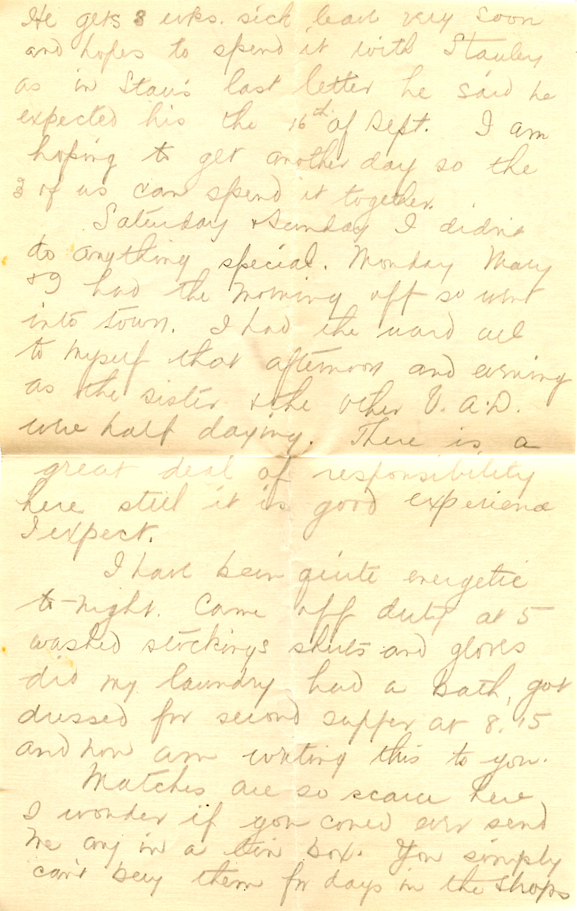 He gets 3 wks. sick leave very soon
and hopes to spend it with Stanley
as in Stan's last letter he said he
expected his the 16th of Sept. I am
hoping to get another day so the
3 of us can spend it together.
Saturday & Sunday I didn't
do anything special. Monday Mary
& I had the morning off so went
into town. I had the ward all
to myself that afternoon and evening
as the sister & the other V.A.D.
were half daying. There is a
great deal of responsibility
here still it is good experience
I expect.
I have been quite energetic
to-night. Came off duty at 5
washed stockings shirts and gloves
did my laundry had a bath, got
dressed for second supper at 8.15
and now am writing this to you.
Matches are so scarce here
I wonder if you could ever send
me any in a tin box. You simply
can't buy them for days in the shops